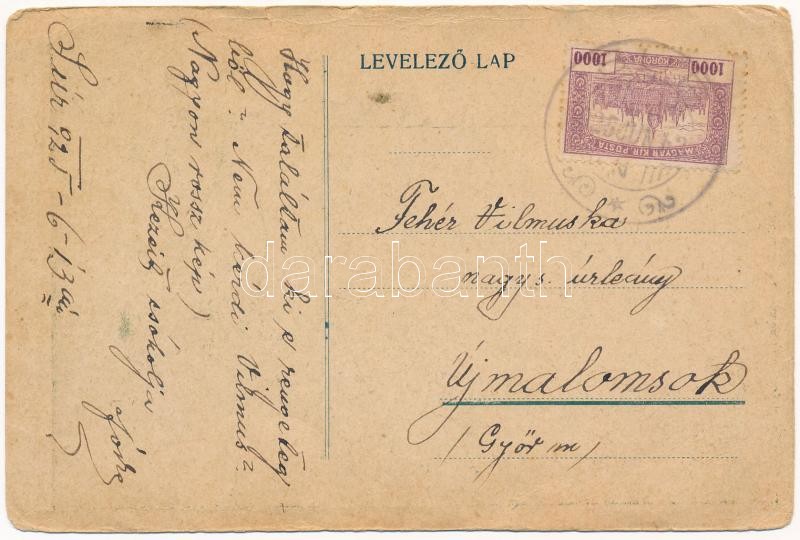 LEVELEZŐ LAP
1000
1000
KORONA
MAGYAR KIR. POSTA
Fehér Vilmuska
nagys. úrleány
Újmalomsok
(Győr m)
Hogy találtam ki e rengeteg
ből? Nem kérdi Vilmus?
(Nagyon rossz kép)
Kezeit csókolja
Józsi
Súr 925-6-13 án
darabanth